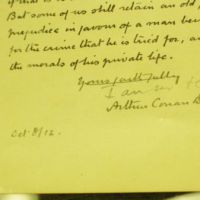 But some of us still retain an old
prejudice in favour of a man being
for the crime that he is tried for, an
the morals of his private life.
Yours faithfully
I am Sir
Arthur Conan D
Oct 8/12.